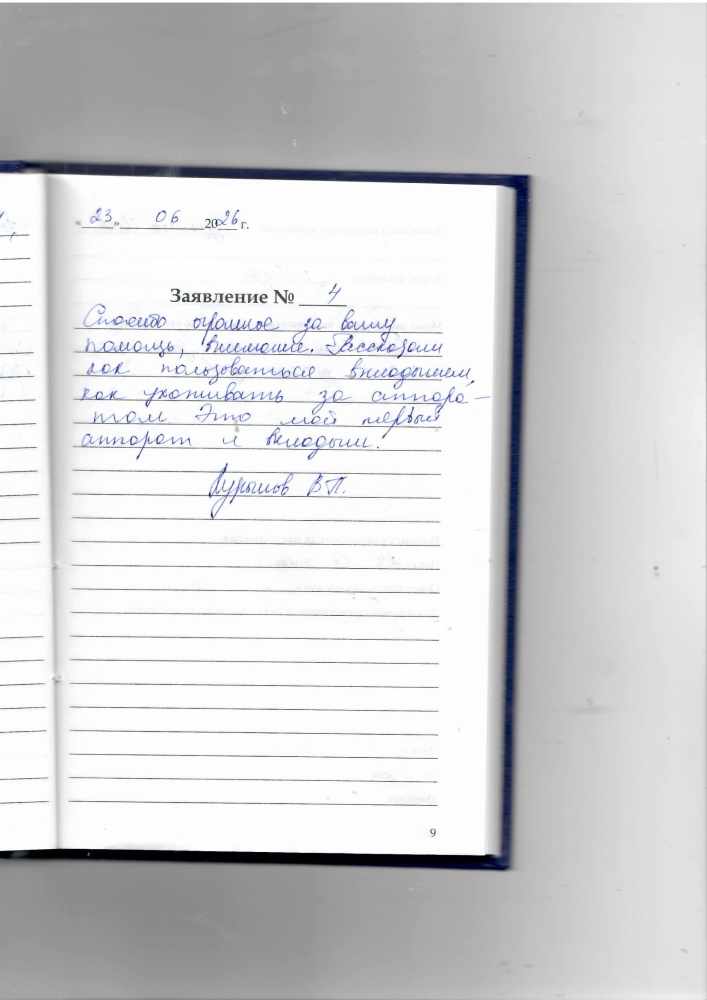 « 23 » 06 2026 г.
Заявление № 4
Спасибо огромное за вашу
помощь, внимание. Рассказали
как пользоваться вкладышем,
как ухаживать за аппара-
том Это мой первый
аппарат и вкладыш.
В.П.
9